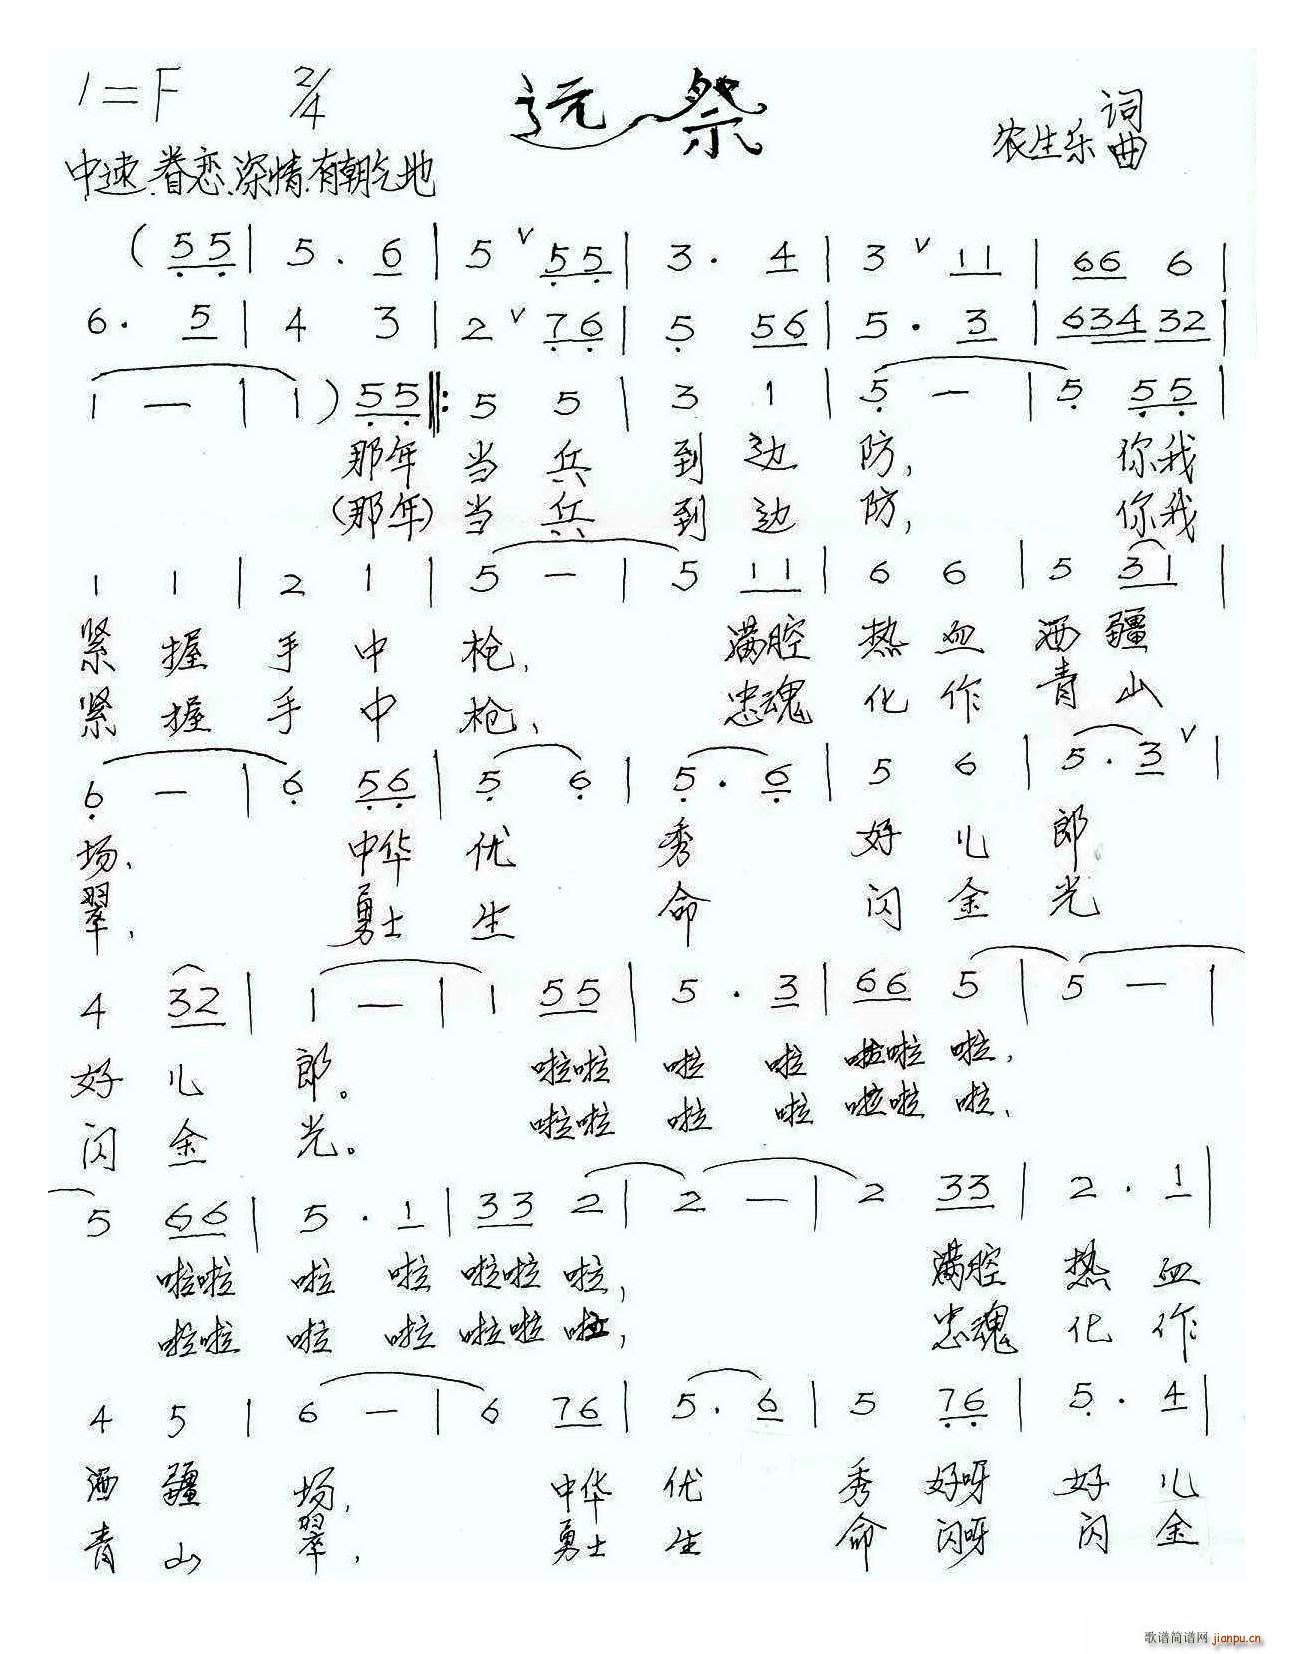 1=F 2/4 远祭 农生乐 词曲
中速、眷恋、深情、有朝气地
( 5̣5̣ | 5 . 6 | 5 ∨ 5̣5̣ | 3 . 4 | 3 ∨ 11 | 66 6 |
6 . 5 | 4 3 | 2 ∨ 7̣6̣ | 5̣ 56 | 5 . 3 | 634 32 |
1 — | 1 ) 5̣5̣ ‖: 5 5 | 3 1 | 5̣ — | 5̣ 5̣5̣ |
那年 当 兵 到 边 防, 你我
(那年) 当 兵 到 边 防, 你我
1 1 | 2 1 | 5 — | 5 11 | 6 6 | 5 31 |
紧 握 手 中 枪, 满腔 热 血 洒 疆
紧 握 手 中 枪, 忠魂 化 作 青 山
6̣ — | 6̣ 5̣6̣ | 5̣ 6̣ | 5̣ . 6̣ | 5 6 | 5 . 3 ∨ |
场, 中华 优 秀 好 儿 郎
翠, 勇士 生 命 闪 金 光
4 32 | 1 — | 1 55 | 5 . 3 | 66 5 | 5 — |
好 儿 郎。 啦啦 啦 啦 啦啦 啦,
闪 金 光。 啦啦 啦 啦 啦啦 啦,
5 66 | 5 . 1 | 33 2 | 2 — | 2 33 | 2 . 1 |
啦啦 啦 啦 啦啦 啦, 满腔 热 血
啦啦 啦 啦 啦啦 啦, 忠魂 化 作
4 5 | 6 — | 6 76 | 5 . 6 | 5 7̣6̣ | 5̣ . 4 |
洒 疆 场, 中华 优 秀 好呀 好 儿
青 山 翠, 勇士 生 命 闪呀 闪 金
歌谱简谱网 jianpu.cn